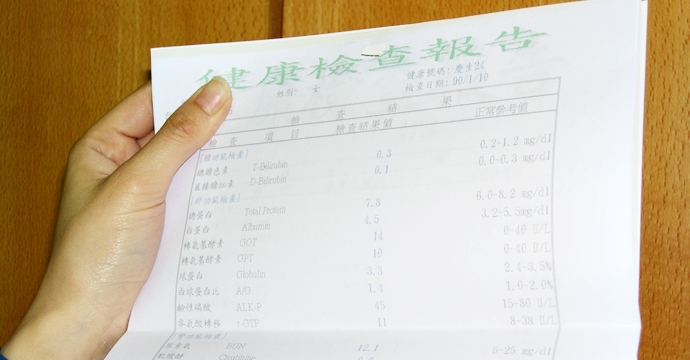 健康檢查報告
姓別: 女
健康號碼: 慶生24
檢查日期: 90/1/10
檢查結果
檢查項目 檢查結果值 正常參考值
[膽功能檢素]
總膽色素 T-Bilirubin 0.3 0.2-1.2 mg/dl
直接膽紅素 D-Bilirubin 0.1 0.0-0.3 mg/dl
[肝功能檢素]
總蛋白 Total Protein 7.8 6.0-8.2 mg/dl
白蛋白 Albumin 4.5 3.2-5.5mg/dl
轉氨基酵素 GOT 14 0-40 U/L
轉氨基酵素 GPT 10 0-40 U/L
球蛋白 Globulin 3.3 2.4-3.5%
白球蛋白比 A/G 1.4 1.0-2.0%
鹼性磷酸 ALK-P 45 15-80 U/L
r-GTP 11 8-38 U/L
BUN 12.1 5-25 mg/dl